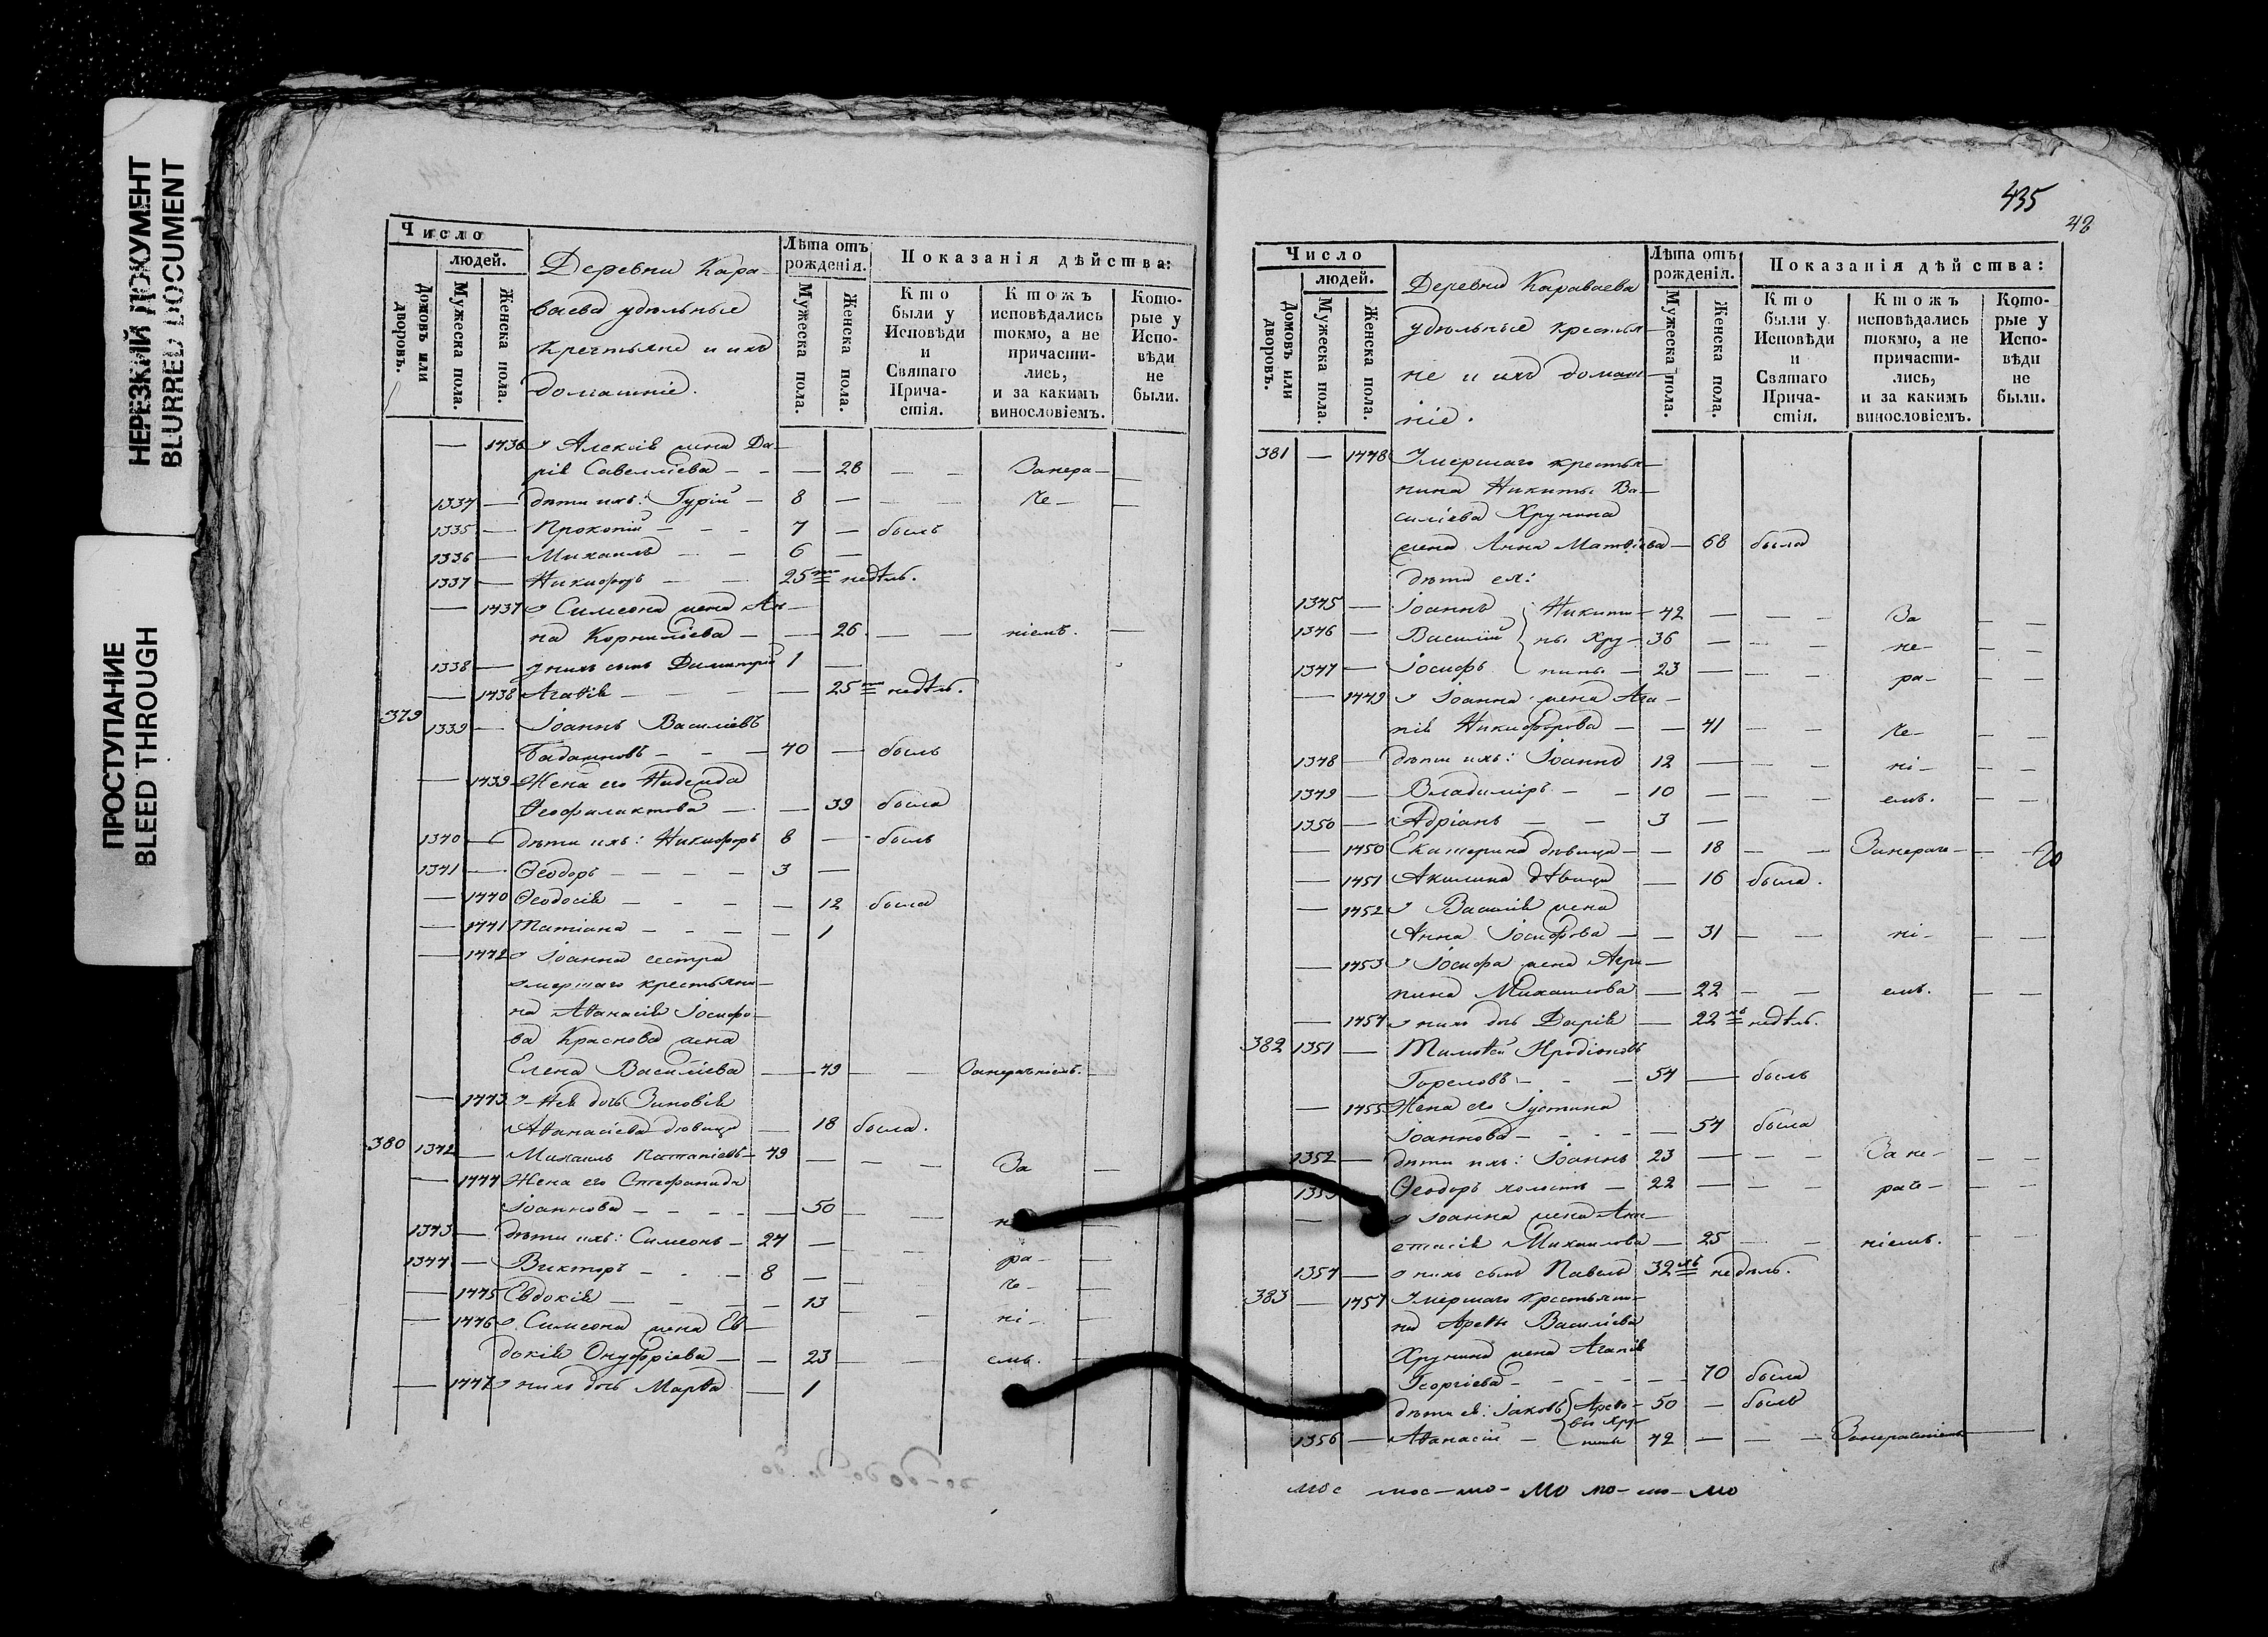 НЕРЕЗКИЙ ДОКУМЕНТ
BLURRED DOCUMENT
ПРОСТУПАНИЕ
BLEED THROUGH
Число
людей.
Домовъ или дворовъ.
Мужеска пола.
Женска пола.
Деревни Кара-
ваева удѣльные
крестьяне и ихъ
домашніе.
Лѣта отъ рожденія.
Мужеска пола.
Женска пола.
Показанія дѣйства:
Кто были у Исповѣди и Святаго Прича-стія.
Ктожъ исповѣдались токмо, а не причасти-лись, и за какимъ винословіемъ.
Кото-рые у Испо-вѣди не были.
— 1436 Алексія жена Да-
рія Савелліева - - — 28 — — Занера-
1334 — дѣти ихъ: Гурій — 8 — — че-
1335 — Прокопій - - - 7 — былъ
1336 — Михаилъ - - 6 —
1337 — Никифоръ - - 25 недѣль.
— 1437 Симеона жена Ан-
на Корниліева — — 26 — — ніемъ. —
1338 — у нихъ сынъ Димитрій 1 —
— 1438 Агаѳія - - - — 25 недѣль.
379 1339 — Іоаннъ Василіевъ
- - - 40 — былъ
— 1439 Жена его Надежда
Ѳеофилактова — — 39 была
1340 — дѣти ихъ: Никифоръ 8 — былъ
1341 — Ѳеодоръ - - - - 3 —
— 1440 Ѳеодосія - - - — 12 была
— 1441 Татіана - - - — 1
— 1442 Іоанна сестра
умершаго крестьяни-
на Аѳанасія Іосифо-
ва Краснова жена
Елена Василіева — — 49 — — Занераченіемъ. —
— 1443 У ней дочь Зиновія
Аѳанасіева дѣвица — 18 была.
380 1342 — Михаилъ — 49 — — — За —
— 1444 Жена его Стефанида
Іоаннова - - - - — 50 — — не —
1343 — дѣти ихъ: Симеонъ - 24 — — — ра- —
1344 — Викторъ - - - 8 — — че- —
— 1445 Евдокія - - - - 13 — — ні- —
— 1446 Симеона жена Ев-
докія Онуфріева — — 23 — — емъ. —
— 1447 у нихъ дочь Марѳа — 1
435
48
Число
людей.
Домовъ или дворовъ.
Мужеска пола.
Женска пола.
Деревни Караваева
удѣльные крестья-
не и ихъ домаш-
ніе.
Лѣта отъ рожденія.
Мужеска пола.
Женска пола.
Показанія дѣйства:
Кто были у Исповѣди и Святаго Прича-стія.
Ктожъ исповѣдались токмо, а не причасти-лись, и за какимъ винословіемъ.
Кото-рые у Испо-вѣди не были.
381 — 1448 Умершаго крестья-
нина Никиты Ва-
силіева Хрунина
жена Анна Матѳіева — 68 была
дѣти ея:
1345 — Іоаннъ Никити- 42 — — — За — —
1346 — Василій ны Хру- 36 — — — не- — —
1347 — Іосифъ нины — 23 — — — ра- — —
— 1449 Іоанна жена Ага-
пія Никифорова — — 41 — — че- — —
1348 — дѣти ихъ: Іоаннъ 12 — — — ні- — —
1349 — Владиміръ - - 10 — — — емъ. — —
1350 — Адріанъ - - 3 —
— 1450 Екатерина дѣвица — — 18 — — Занераче- — —
— 1451 Акилина дѣвица — 16 была.
— 1452 Василія жена
Анна Іосифова — — 31 — — ні- — —
— 1453 Іосифа жена Агри-
пина Михаилова — 22 — — емъ. — —
— 1454 у нихъ дочь Дарія — 22 недѣль.
382 1351 — Тимоѳей Иродіоновъ
Гореловъ - - - 54 — былъ
— 1455 Жена его Іустина
Іоаннова - - - — 54 была
1352 — дѣти ихъ: Іоаннъ 23 — — — За не- — —
1353 Ѳеодоръ холостъ — 22 — — — раче- — —
— Іоанна жена Ана-
стасія Михаилова — 25 — — ніемъ. — —
1354 — у нихъ сынъ Павелъ 32 недѣль.
383 — 1457 Умершаго крестьяни-
на Ареѳы Василіева
Хрунина жена Агапія
Георгіева - - - - - 70 была
дѣти ея: Іаковъ Арефь- 50 — былъ
1356 — Аѳанасій — вы Хру-нины 42 — — — Занераченіемъ —